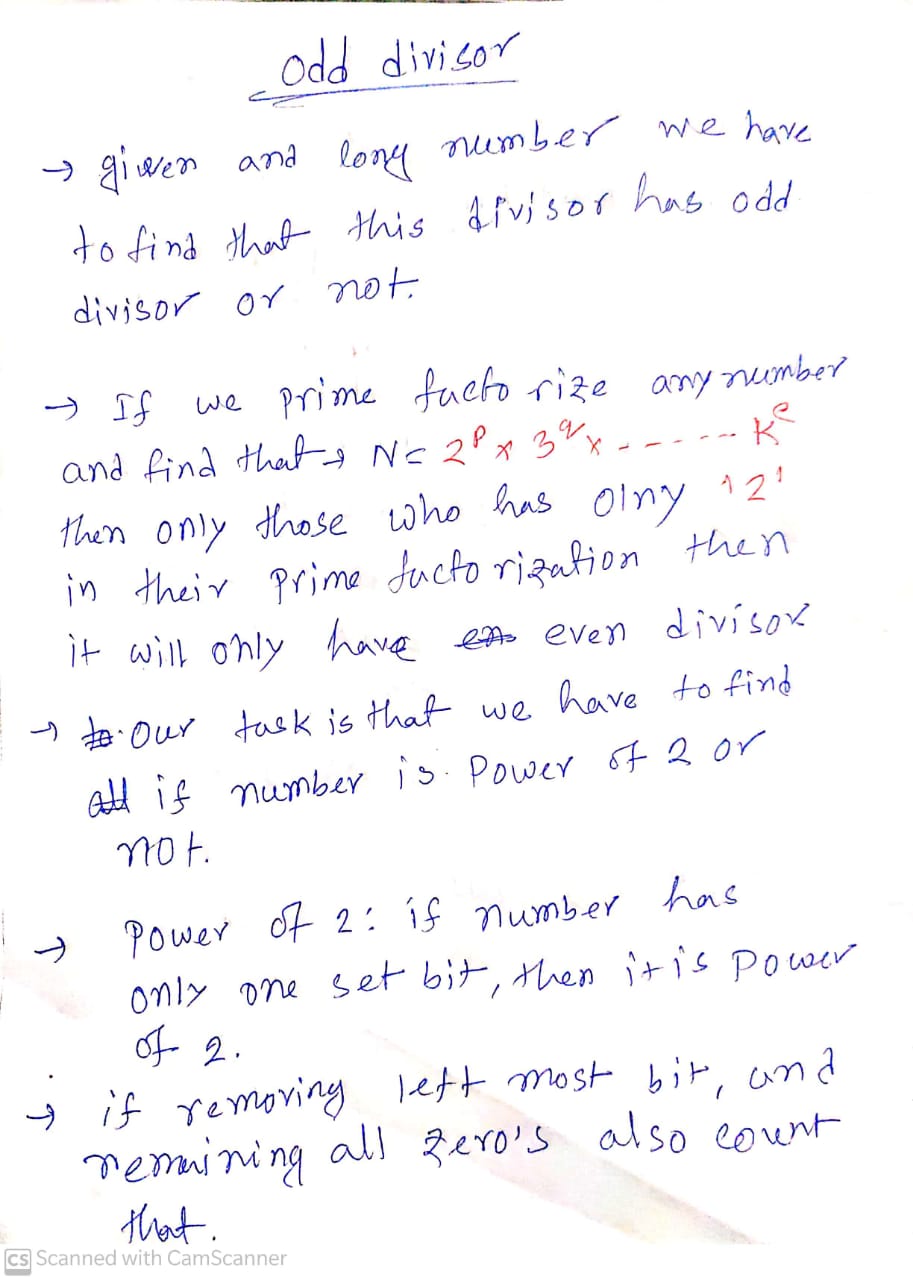 odd divisor
→ given and long number we have
to find that this divisor has odd
divisor or not.
→ If we prime factorize any number
and find that → N = 2^p x 3^q x ------ K^e
then only those who has olny '2'
in their prime factorization then
it will only have even divisor
→ Our task is that we have to find
if number is Power of 2 or
not.
→ Power of 2: if number has
only one set bit, then it is Power
of 2.
→ if removing left most bit, and
remaining all zero's also count
that.
CS Scanned with CamScanner